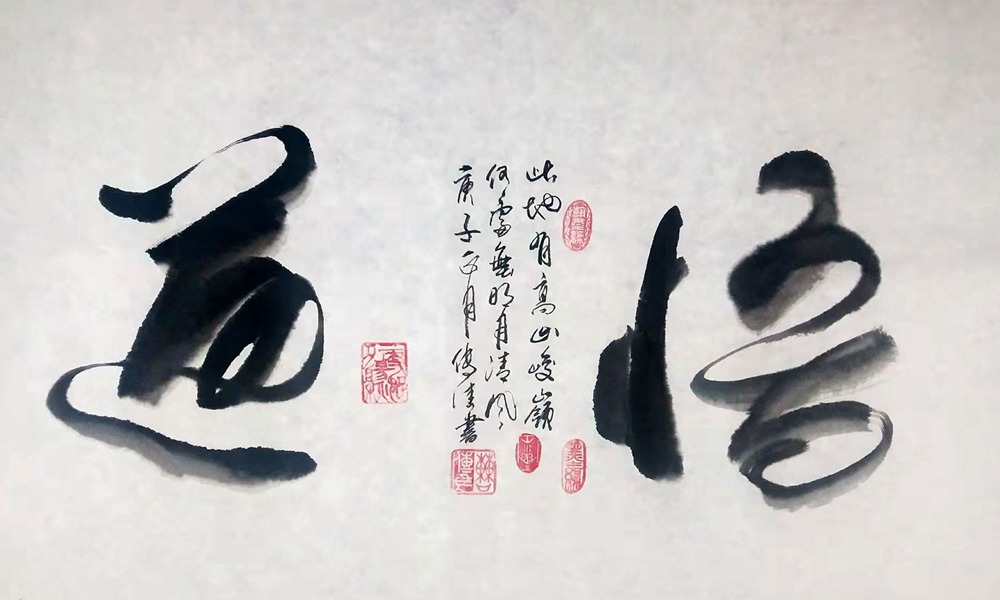 悟
此地有高山峻嶺
何處無明月清風
庚子正月傳佳書
道